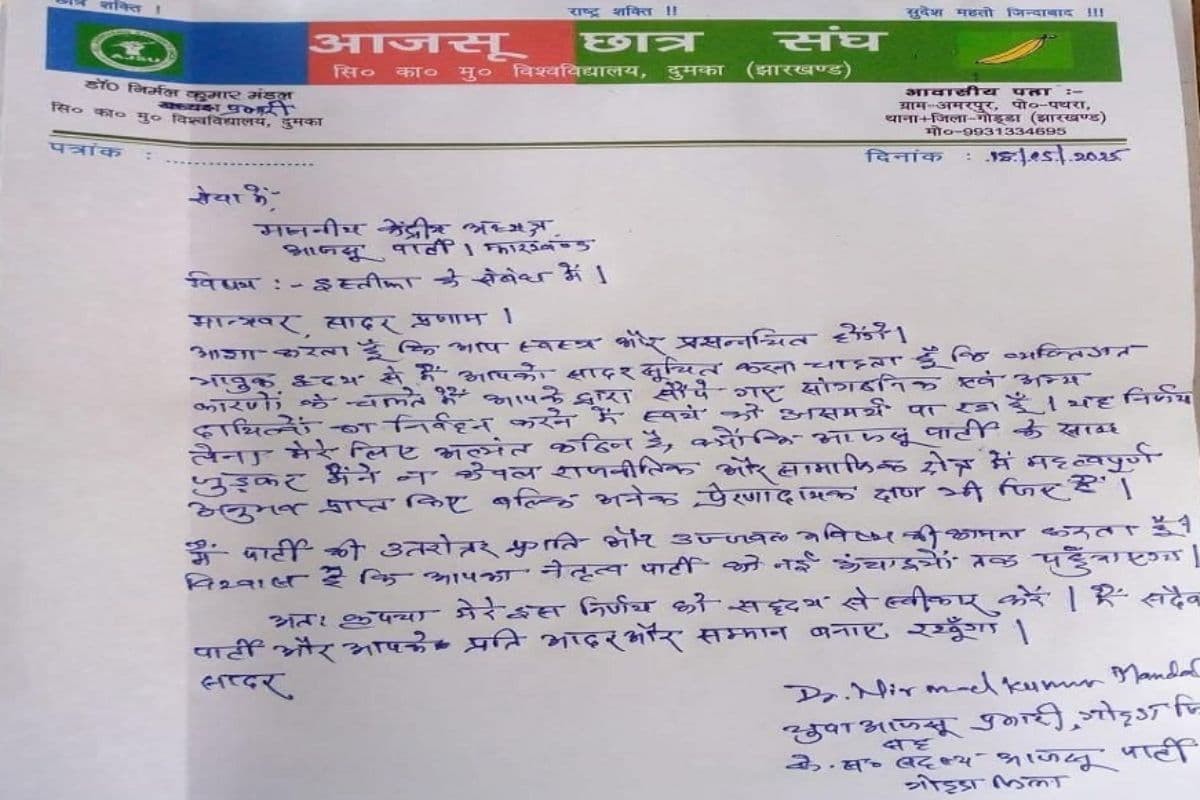 छात्र शक्ति ! राष्ट्र शक्ति !! सुदेश महतो जिन्दाबाद !!!
AJSU
आजसू छात्र संघ
सि० का० मु० विश्वविद्यालय, दुमका (झारखण्ड)
डॉ० निर्मल कुमार मंडल
प्रभारी
सि० का० मु० विश्वविद्यालय, दुमका
आवासीय पता :-
ग्राम-अमरपुर, पो०-पथरा,
थाना+जिला-गोड्डा (झारखण्ड)
मो०-9931334695
पत्रांक : ..................... दिनांक : 18/05/2025
सेवा में,
माननीय केंद्रीय अध्यक्ष
आजसू पार्टी । झारखण्ड
विषय :- इस्तीफा के संबंध में ।
मान्यवर, सादर प्रणाम ।
आशा करता हूँ कि आप स्वस्थ और प्रसन्नचित होंगे।
भावुक हृदय से मैं आपको सादर सूचित करना चाहता हूँ कि व्यक्तिगत
कारणों के चलते मैं आपके द्वारा सौंपे गए सांगठनिक एवं अन्य
दायित्वों का निर्वहन करने में स्वयं को असमर्थ पा रहा हूँ । यह निर्णय
लेना मेरे लिए अत्यंत कठिन है, क्योंकि आजसू पार्टी के साथ
जुड़कर मैंने न केवल राजनीतिक और सामाजिक क्षेत्र में महत्वपूर्ण
अनुभव प्राप्त किए बल्कि अनेक प्रेरणादायक क्षण भी जिए हैं ।
मैं पार्टी की उतरोतर प्रगति और उज्जवल भविष्य की कामना करता हूँ।
विश्वास है कि आपका नेतृत्व पार्टी को नई ऊंचाइयों तक पहुँचाएगा ।
अतः कृपया मेरे इस निर्णय को सहृदय से स्वीकार करें । मैं सदैव
पार्टी और आपके प्रति आदर और सम्मान बनाए रखूँगा ।
सादर
Dr. Nirmal Kumar Mandal
युवा आजसू प्रभारी, गोड्डा जि
सह
के. स० सदस्य आजसू पार्टी
गोड्डा जिला